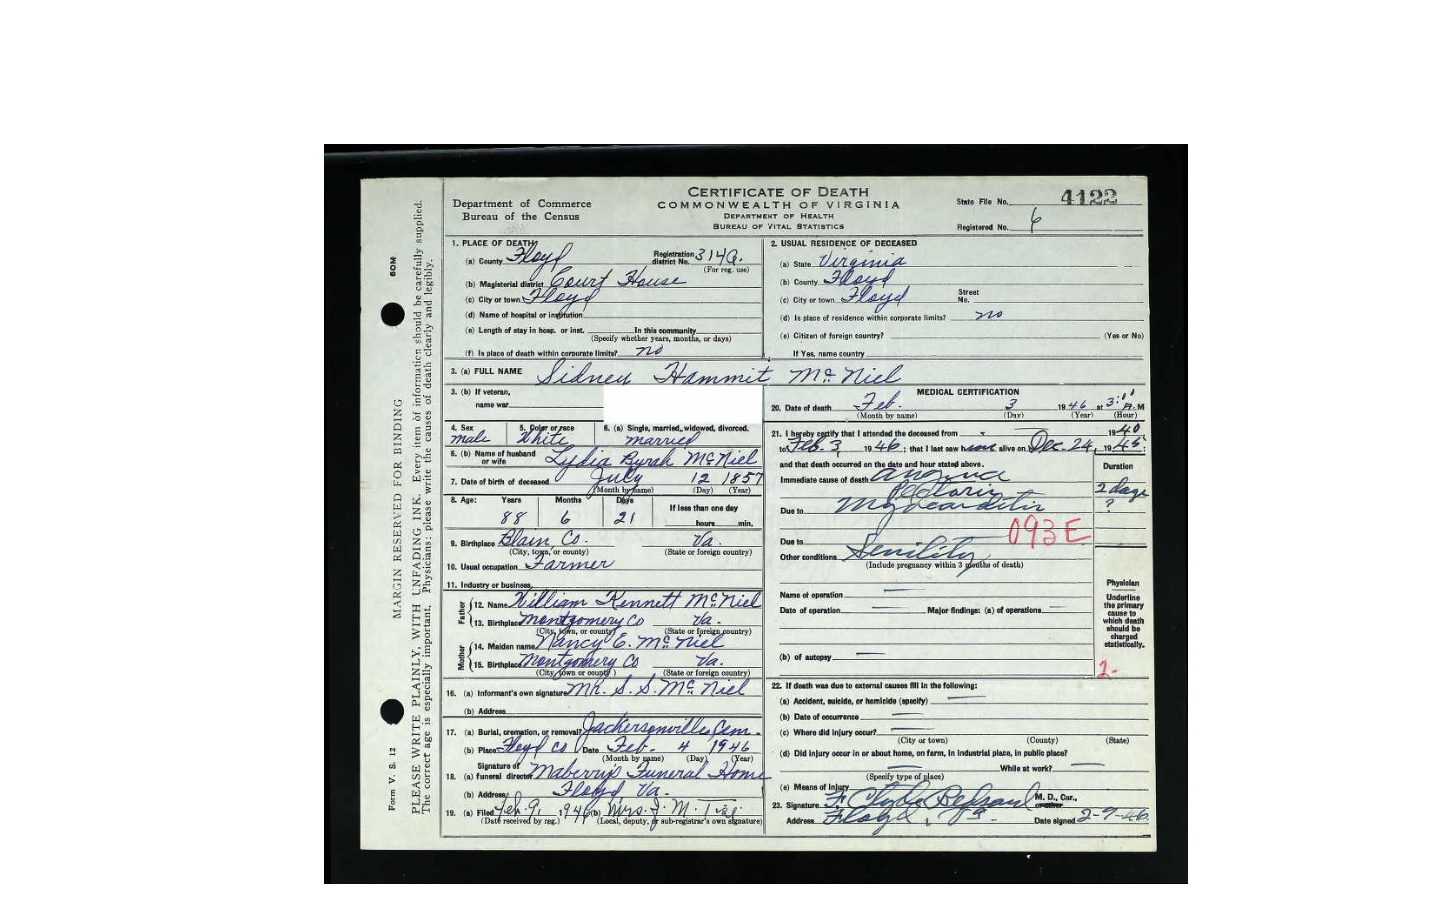 CERTIFICATE OF DEATH
COMMONWEALTH OF VIRGINIA
DEPARTMENT OF HEALTH
BUREAU OF VITAL STATISTICS
Department of Commerce
Bureau of the Census
State File No. 4122
Registered No. 6
MARGIN RESERVED FOR BINDING
PLEASE WRITE PLAINLY, WITH UNFADING INK. Every item of information should be carefully supplied.
The correct age is especially important. Physicians: please write the causes of death clearly and legibly.
Form V. S. 12
50M
1. PLACE OF DEATH
(a) County Floyd Registration district No. 314
(For reg. use)
(b) Magisterial district Court House
(c) City or town Floyd
(d) Name of hospital or institution
(e) Length of stay in hosp. or inst. In this community
(Specify whether years, months, or days)
(f) Is place of death within corporate limits? no
2. USUAL RESIDENCE OF DECEASED
(a) State Virginia
(b) County Floyd
(c) City or town Floyd Street No.
(d) Is place of residence within corporate limits? no
(e) Citizen of foreign country? (Yes or No)
If Yes, name country
3. (a) FULL NAME Sidney Hammit McNiel
3. (b) If veteran,
name war
4. Sex male
5. Color or race White
6. (a) Single, married, widowed, divorced. married
6. (b) Name of husband or wife Lydia Byrah McNiel
7. Date of birth of deceased July 12 1857
(Month by name) (Day) (Year)
8. Age: Years Months Days If less than one day
88 6 21 hours min.
9. Birthplace Co. Va.
(City, town, or county) (State or foreign country)
10. Usual occupation Farmer
11. Industry or business
Father
12. Name William Kennett McNiel
13. Birthplace Montgomery Co Va.
(City, town, or county) (State or foreign country)
Mother
14. Maiden name Nancy E. McNiel
15. Birthplace Montgomery Co Va.
(City, town or county) (State or foreign country)
16. (a) Informant's own signature Mr. S. S. McNiel
(b) Address
17. (a) Burial, cremation, or removal? Cem.
(b) Place Floyd Co Date Feb. 4 1946
(Month by name) (Day) (Year)
18. (a) Signature of funeral director Funeral Home
(b) Address Floyd Va.
19. (a) Filed Feb. 9, 1946 (b) Mrs. J. M.
(Date received by reg.) (Local, deputy, or sub-registrar's own signature)
MEDICAL CERTIFICATION
20. Date of death Feb. 3 1946 at 3: A.M
(Month by name) (Day) (Year) (Hour)
21. I hereby certify that I attended the deceased from 1940
to Feb. 3 1946; that I last saw him alive on Dec. 24, 1945;
and that death occurred on the date and hour stated above.
Duration
Immediate cause of death Angina
Pectoris 2 days
Due to Myocarditis ?
093E
Due to
Other conditions Senility
(Include pregnancy within 3 months of death)
Name of operation
Date of operation Major findings: (a) of operations
(b) of autopsy
Physician
Underline the primary cause to which death should be charged statistically.
2-
22. If death was due to external causes fill in the following:
(a) Accident, suicide, or homicide (specify)
(b) Date of occurrence
(c) Where did injury occur?
(City or town) (County) (State)
(d) Did injury occur in or about home, on farm, in industrial place, in public place?
While at work?
(Specify type of place)
(e) Means of injury
23. Signature F. Clyde M. D., Cor., or other
Address Floyd, Va. Date signed 2-9-46